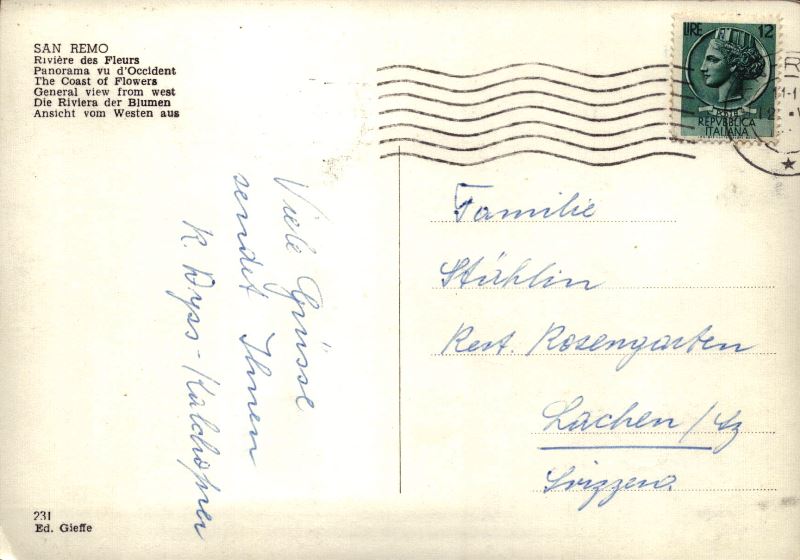 SAN REMO
Rivière des Fleurs
Panorama vu d'Occident
The Coast of Flowers
General view from west
Die Riviera der Blumen
Ansicht vom Westen aus
LIRE 12
REPVBBLICA
ITALIANA
Viele Grüsse
sendet Ihnen
K. Wyss-
Familie
Stählin
Rest. Rosengarten
Lachen / Sz
Svizzera
231
Ed. Gieffe